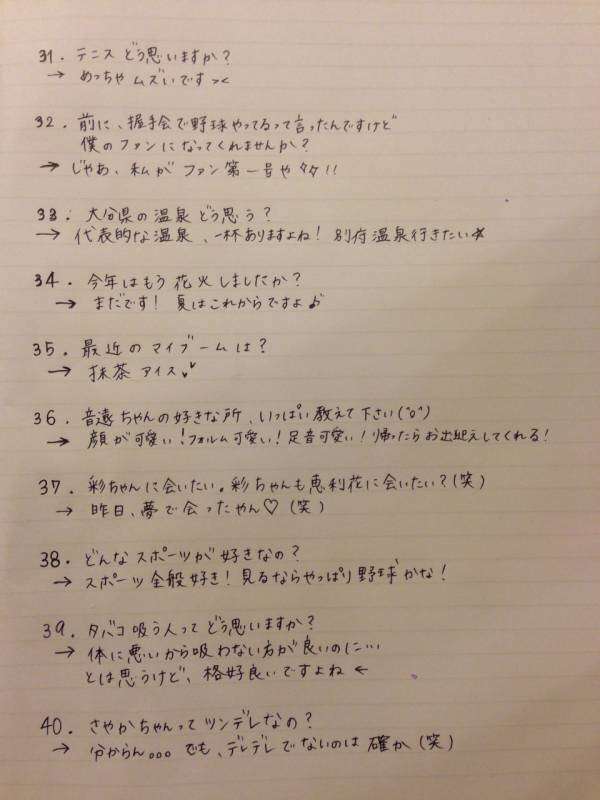 31. テニス どう思いますか？
→ めっちゃ ムズいですっ<
32. 前に、握手会で野球やってるって言ったんですけど
僕のファンになってくれませんか？
→ じゃあ、私がファン第一号やタタ!!
33. 大分県の温泉どう思う？
→ 代表的な温泉、一杯ありますよね! 別府温泉行きたい☆
34. 今年はもう花火しましたか？
→ まだです! 夏はこれからですよ♪
35. 最近のマイブームは？
→ 抹茶アイス
36. 音遠ちゃんの好きな所、いっぱい教えて下さい(°o°)
→ 顔が可愛い!フォルム可愛い!足音可愛い!帰ったらお出迎えしてくれる!
37. 彩ちゃんに会いたい。彩ちゃんも恵利花に会いたい?(笑)
→ 昨日、夢で会ったやん♡(笑)
38. どんなスポーツが好きなの？
→ スポーツ全般好き! 見るならやっぱり野球かな!
39. タバコ吸う人ってどう思いますか？
→ 体に悪いから吸わない方が良いのに…
とは思うけど、格好良いですよね ←
40. さやかちゃんってツンデレなの？
→ 分からん。。。でも、デレデレでないのは確か(笑)